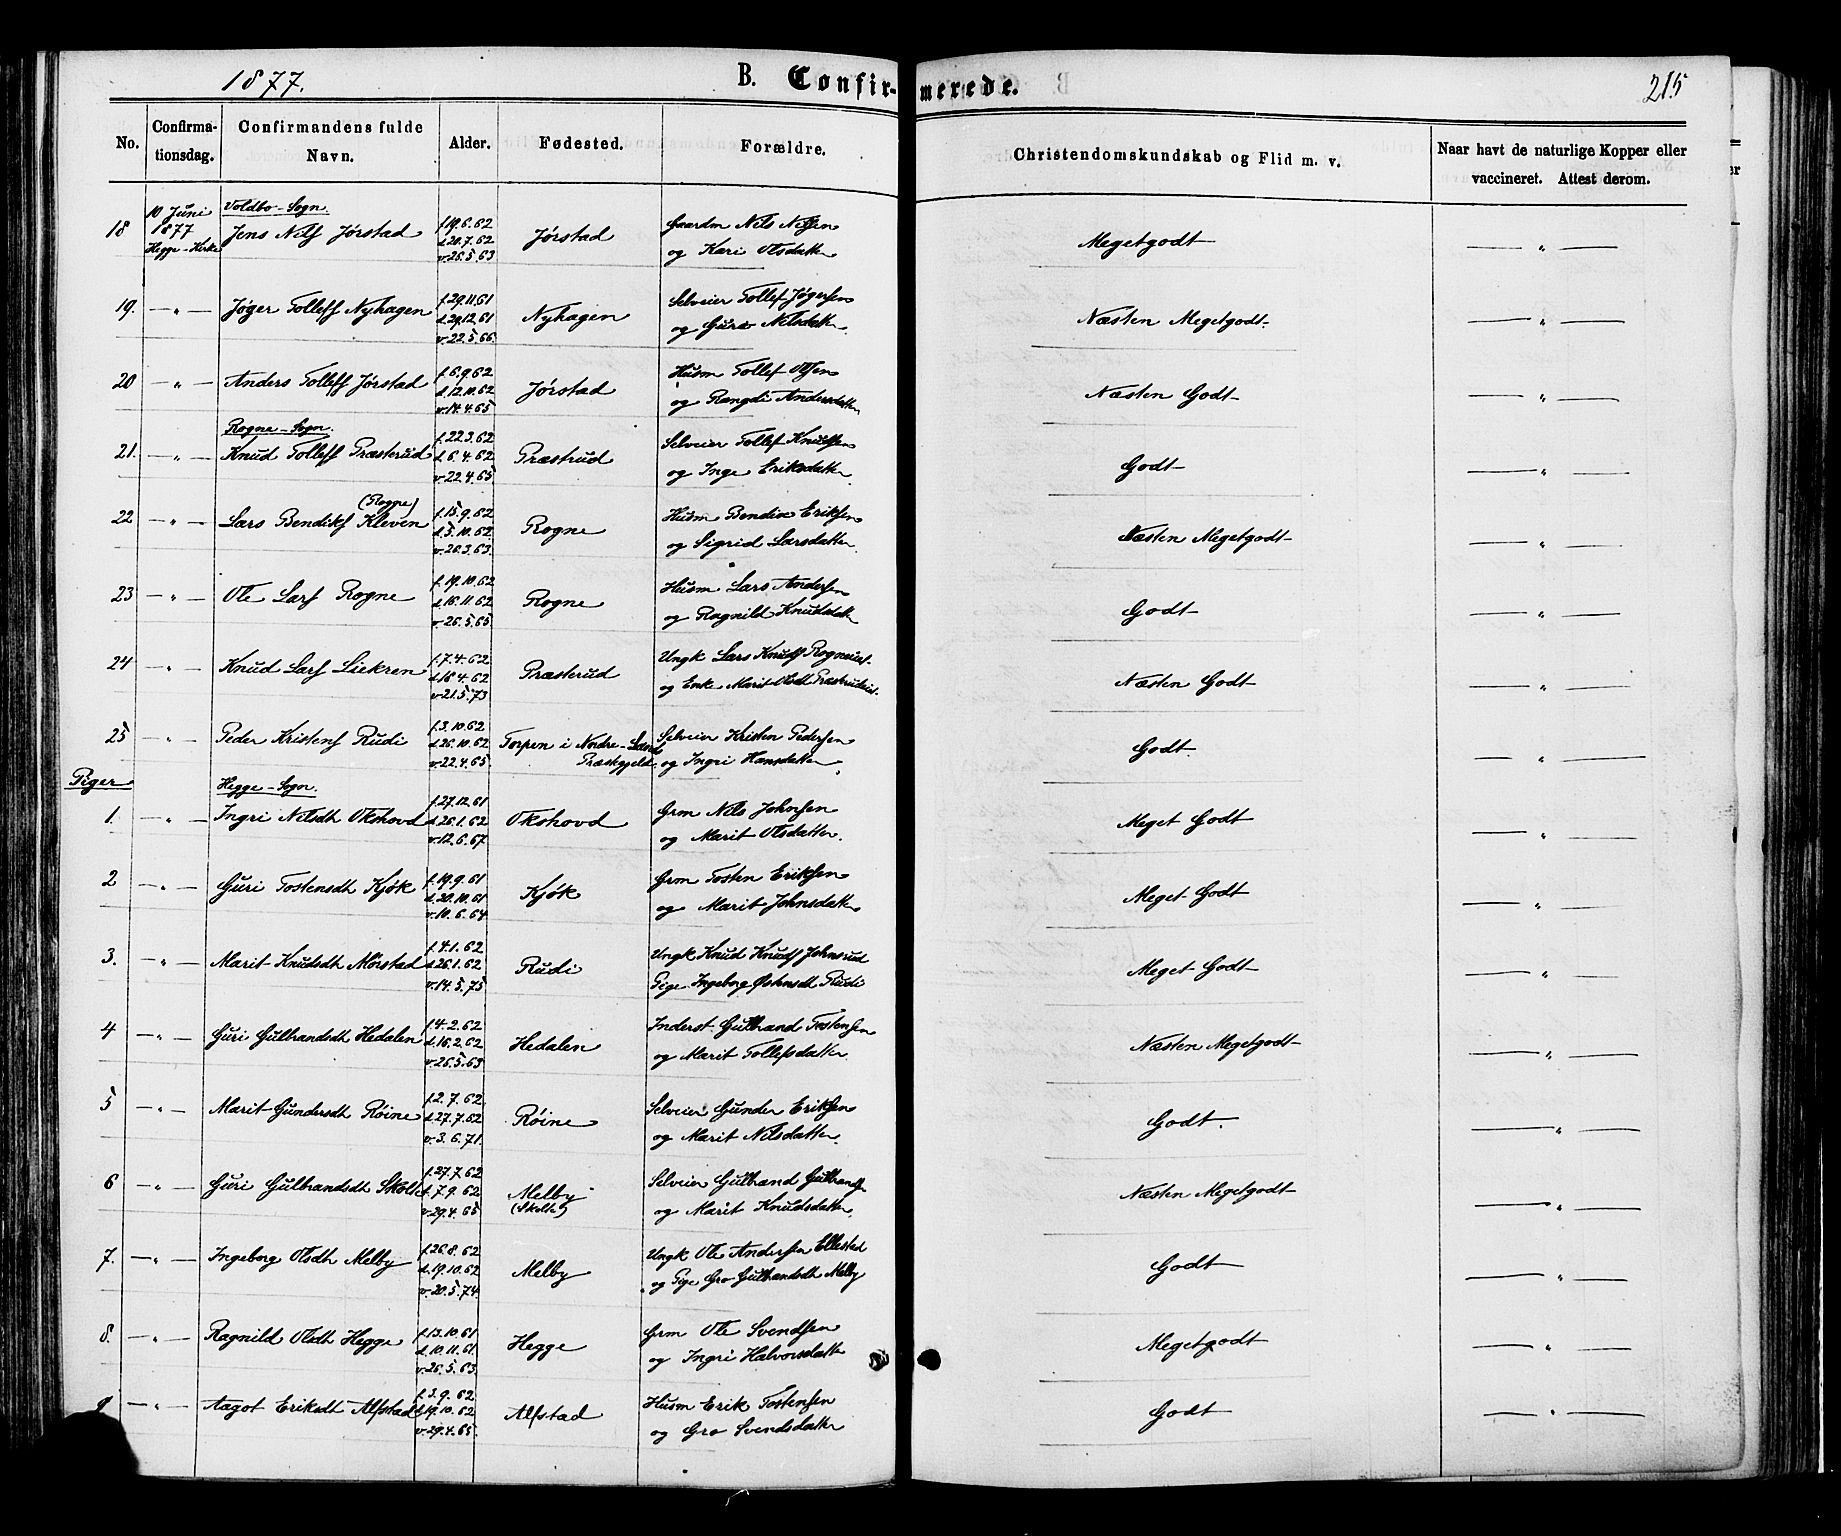 1877.
B. Confirmerede.
215
No.
Confirmationsdag.
Confirmandens fulde Navn.
Alder.
Fødested.
Forældre.
Christendomskundskab og Flid m. v.
Naar havt de naturlige Kopper eller vaccineret. Attest derom.
10 Juni 1877 Hegge-Kirke
Voldbo-Sogn
18 Jens Nilss Jørstad f.19.6.62 d.20.7.62 v.26.5.63 Jørstad Gaardm Nils Nilssen og Kari Olsdatter Megetgodt — " —
19. — " — Jøger Tollefs Nyhagen f.29.11.61 d.29.12.61 v.22.5.66 Nyhagen Selveier Tollef Jøgersen og Guri Nilsdatter Næsten Megetgodt — " —
20 — " — Anders Tollefs Jørstad f.6.9.62 d.12.10.62 v.14.4.65 Jørstad Husm Tollef Olsen og Rangdi Andersdatter Næsten Godt — " —
Rogne-Sogn.
21. — " — Knud Tollefs Præsterud f.22.3.62 d.6.4.62 v.22.4.65 Præstrud Selveier Tollef Knudsen og Inge Eriksdatter Godt — " —
22 — " — Lars Bendiks Kleven (Rogne) f.15.9.62 d.5.10.62 v.20.3.63 Rogne Husm Bendix Eriksen og Sigrid Larsdatter Næsten Megetgodt — " —
23 — " — Ole Lars Rogne f.19.10.62 d.16.11.62 v.26.5.65 Rogne Husm Lars Andersen og Ragnild Knudsdatter Godt — " —
24 — " — Knud Lars Liekren f.7.4.62 d.18.4.62 v.21.5.73 Præsterud Ungk Lars Knuds Rogneeiet og Enke Marit Olsdt Præsterudeiet Næsten Godt — " —
25 — " — Peder Kristens Rudi f.3.10.62 d.26.10.62 v.22.4.65 Torpen i Nordre-Land Præstegjeld Selveier Kristen Pedersen og Ingri Hansdatter Godt — " —
Piger
Hegge-Sogn.
1. — " — Ingri Nilsdt Okshovd f.27.12.61 d.26.1.62 v.12.6.67 Okshovd Grm Nils Johnsen og Marit Olsdatter Meget Godt — " —
2 — " — Guri Tostensdt Kjøk f.19.9.61 d.20.10.61 v.10.6.64 Kjøk Grm Tosten Eriksen og Marit Johnsdatter Meget Godt — " —
3. — " — Marit Knudsdt Mørstad f.4.1.62 d.26.1.62 v.14.5.75 Rudi Ungk Knud Knuds Johnsrud Pige Ingeborg Østensdt Rudi Meget Godt — " —
4 — " — Guri Gulbrandsdt Hedalen f.4.2.62 d.16.2.62 v.26.5.63 Hedalen Inderst Gulbrand Tostensen og Marit Tollefsdatter. Næsten Megetgodt — " —
5 — " — Marit Gundersdt Røine f.2.7.62 d.27.7.62 v.3.6.71. Røine Selveier Gunder Eriksen og Marit Nilsdatter. Godt. — " —
6 — " — Guri Gulbrandsdt Skolte f.27.7.62 d.7.9.62 v.29.4.65 Melby (Skolte) Selveier Gulbrand Gulbrands og Marit Knudsdatter. Næsten Megetgodt — " —
7. — " — Ingeborg Olsdt Melby f.26.8.62 d.19.10.62 v.20.5.74. Melby Ungk Ole Andersen Ellestad og Pige Gro Gulbrandsdt Melby Godt — " —
8. — " — Ragnild Olsdt Hegge f.13.10.61 d.10.11.61. v.26.5.63. Hegge Grm Ole Svendsen og Ingri Halvorsdatter Megetgodt — " —
9 — " — Aagot Eriksdt Alfstad f.3.9.62 d.19.10.62 v.29.4.65. Alfstad Husm Erik Tostensen og Gro Svendsdatter Godt — " —